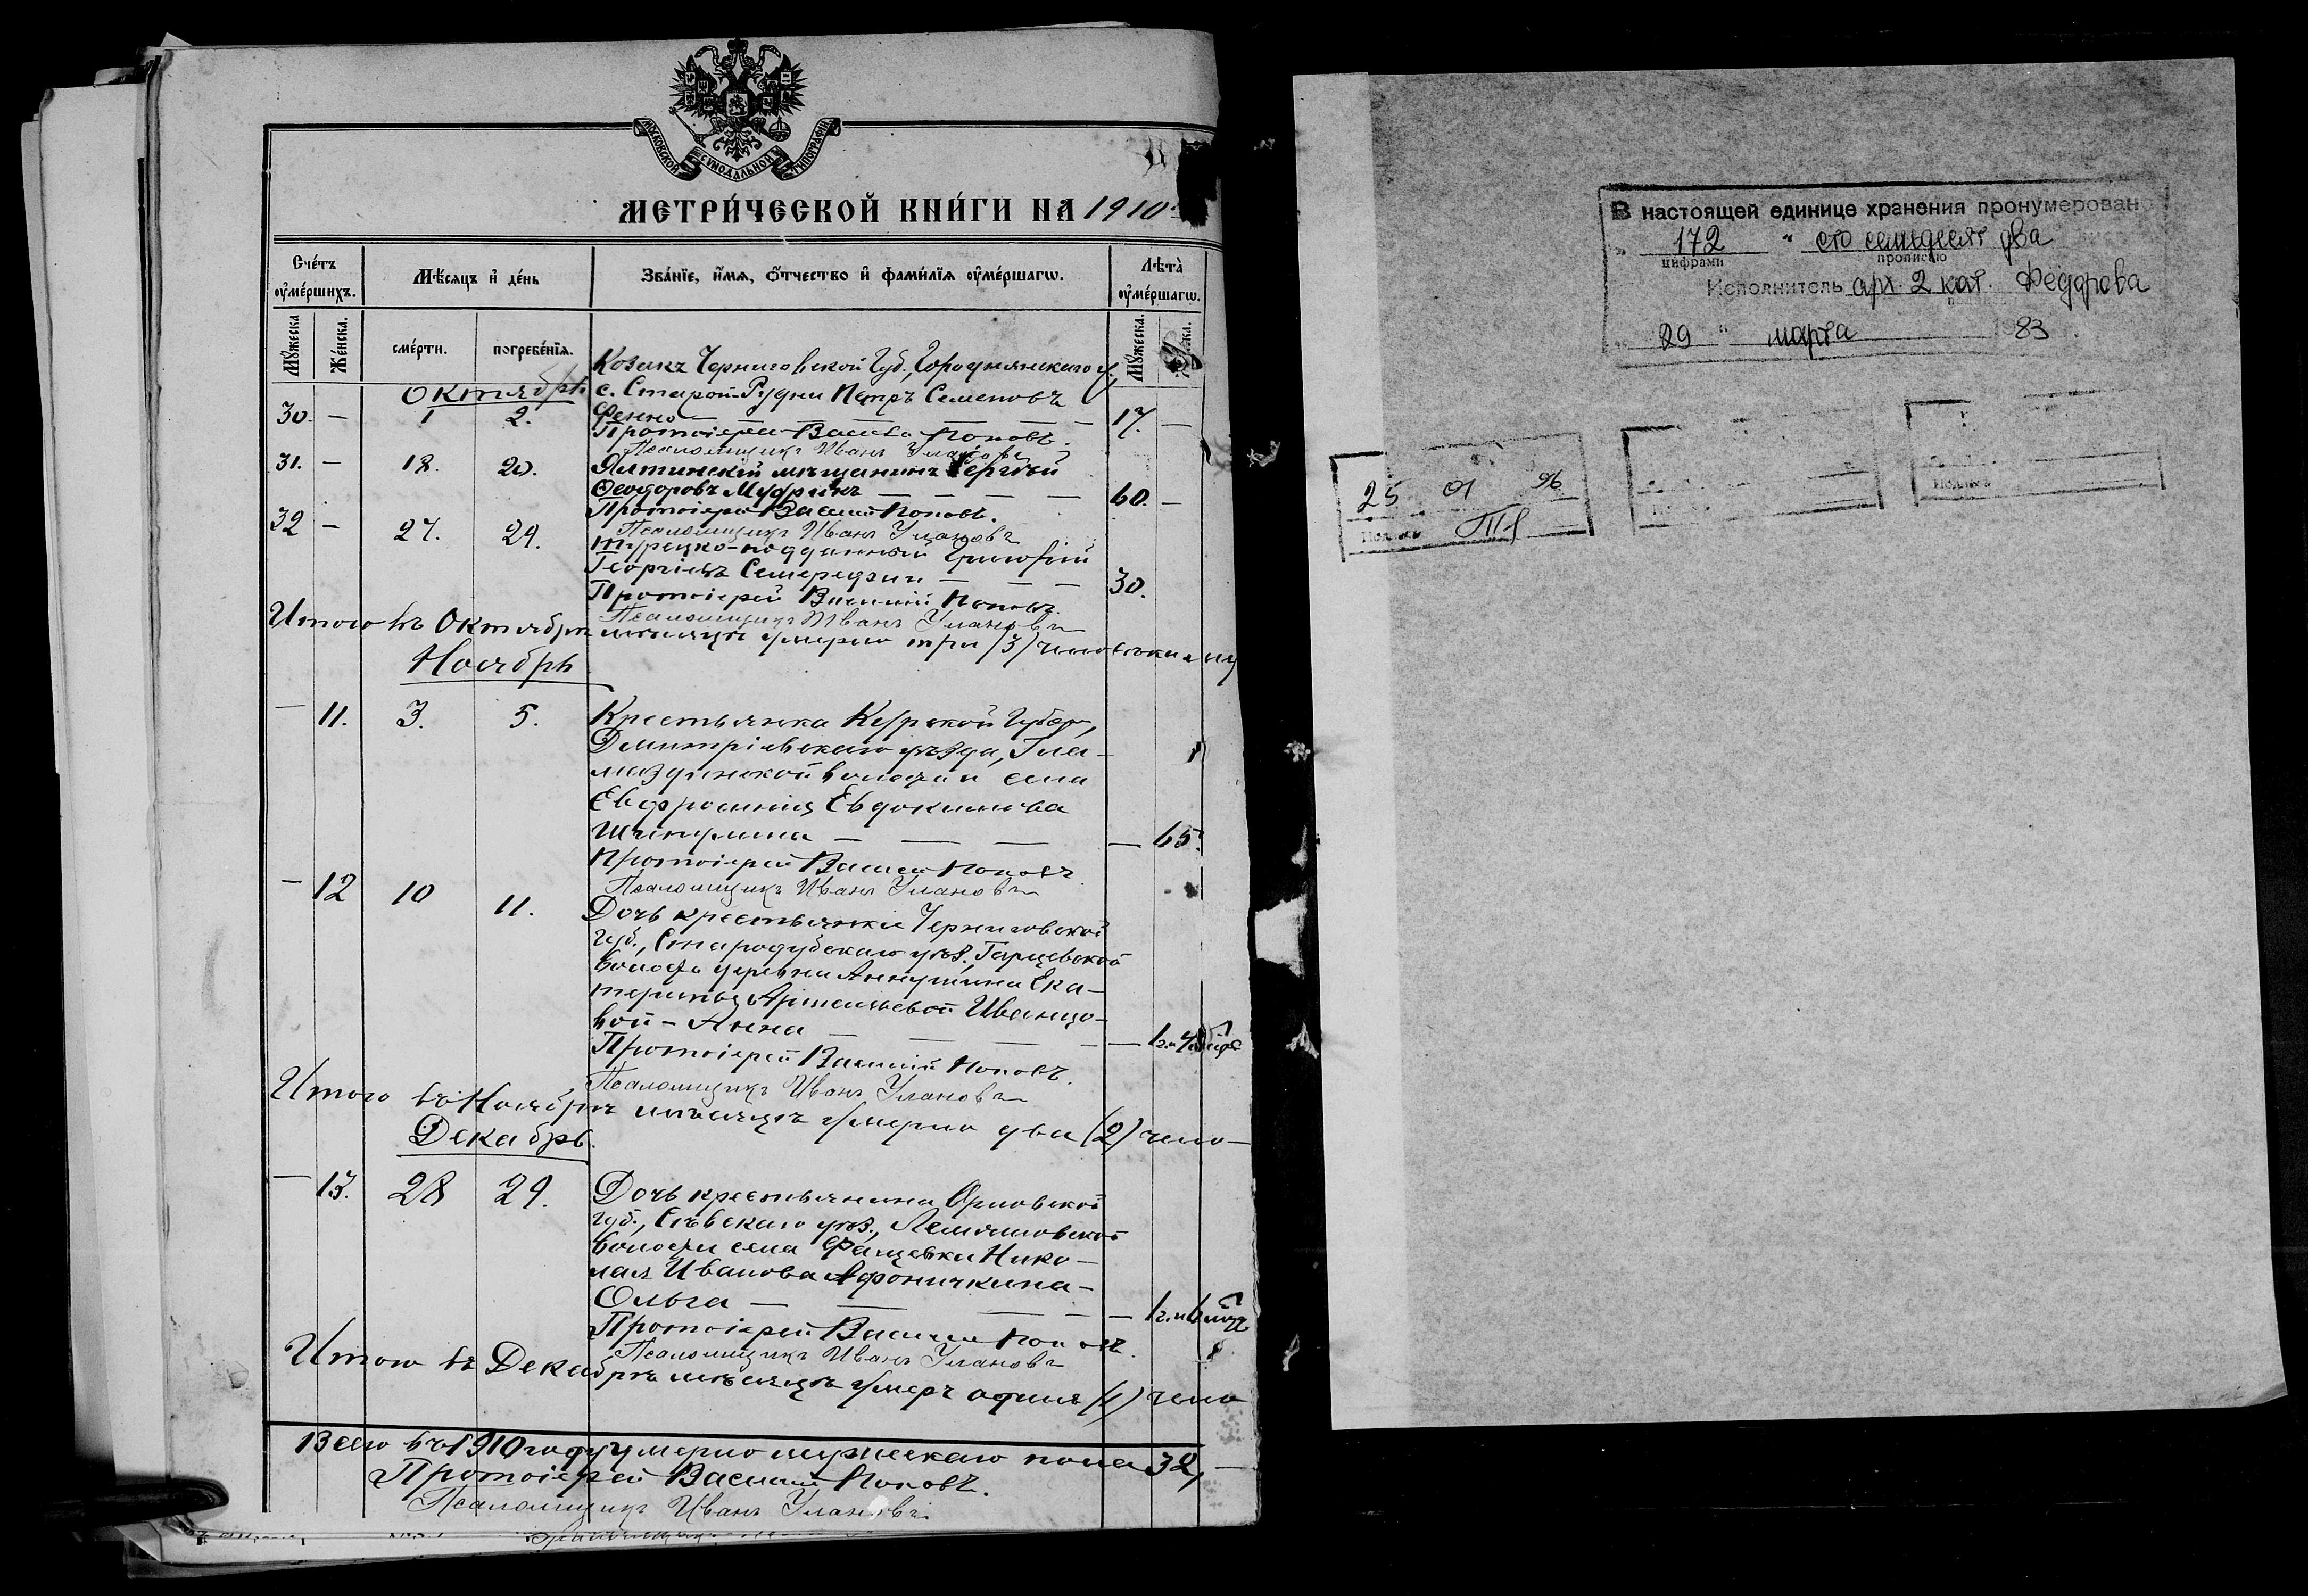 МОСКОВСКОЙ СѴНОДАЛЬНОЙ ТИПОГРАФІИ
МЕТРИ́ЧЕСКОЙ КНИ́ГИ НА 1910
Сче́тъ ᲂу҆ме́ршихъ.
Мѣ́сяцъ и҆ де́нь
Зва́нїе, и҆́мѧ, ѻ҆́тчество и҆ фами́лїѧ ᲂу҆ме́ршагѡ.
Лѣта̀ ᲂу҆ме́ршагѡ.
Мꙋ́жеска
Же́нска.
сме́рти.
погребе́нїѧ.
Мꙋ́жеска.
Козакъ Черниговской Губ., Городнянскаго у.
Октябрь
с. Старой-Рудни Петръ Семеновъ
30. — 1 2. Фенно — — — — 17. —
Протоіерей Василій Поповъ.
Псаломщикъ Иванъ Улановъ
31. — 18. 20. Ялтинскій мѣщанинъ Сергѣй
Ѳеодоровъ Мудринъ — — — — 60. —
Протоіерей Василій Поповъ.
Псаломщикъ Иванъ Улановъ
32 — 27. 29. Турецко-подданный
Георгіевъ Семереджи — — — 30.
Протоіерей Василій Поповъ.
Псаломщикъ Иванъ Улановъ
Итого въ Октябрѣ мѣсяцѣ умерло три (3) человѣка му
Ноябрь
— 11. 3. 5. Крестьянка Курской Губер.,
Дмитріевскаго уѣзда,
волости села
Евфросинія Евдокимова
— — — — 65.
Протоіерей Василій Поповъ
Псаломщикъ Иванъ Улановъ
— 12 10 11. Дочь крестьянки Черниговской
Губ., Стародубскаго уѣз., Гарцевской
волости деревни Аннушина Ека-
терины Арсеньевой Иванцо-
вой - Анна — — — —
Протоіерей Василій Поповъ.
Псаломщикъ Иванъ Улановъ
Итого въ Ноябрѣ мѣсяцѣ умерло два (2) чело-
Декабрь.
— 13. 28 29. Дочь крестьянина Орловской
губ., Сѣвскаго уѣз., Лемяшовской
волости села Фащевки Нико-
лая Иванова Афоничкина -
Ольга — — — —
Протоіерей Василій Поповъ.
Псаломщикъ Иванъ Улановъ
Итого въ Декабрѣ мѣсяцѣ умеръ одинъ (1) чело
Всего въ 1910 году умерло мужескаго пола 32, —
Протоіерей Василій Поповъ.
Псаломщикъ Иванъ Улановъ
В настоящей единице хранения пронумеровано
" 172 " сто семьдесят два
цифрами прописью
Исполнитель арх. 2 кат. Федорова
" 29 " марта 1983
25 01 96
Подпись
Подпись